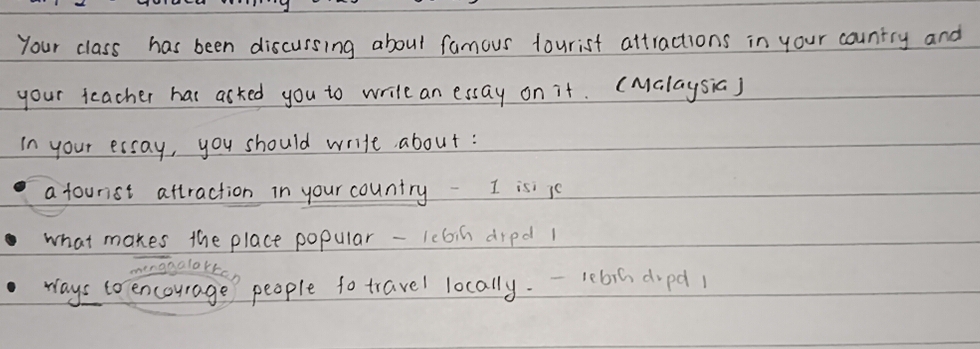 Your class has been discussing about famous tourist attractions in your country and
your teacher has asked you to write an essay on it. (Malaysia)
In your essay, you should write about:
• a tourist attraction in your country - 1 isi je
• what makes the place popular - lebih drpd 1
menggalakkan
• ways to encourage people to travel locally. - lebih drpd 1